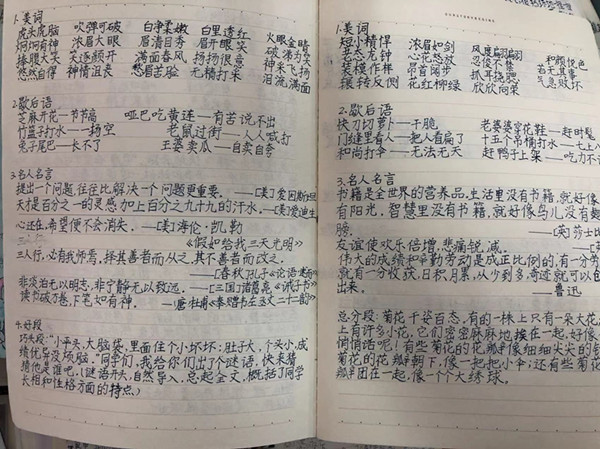 1.美词
虎头虎脑 吹弹可破 白净柔嫩 白里透红 火眼金睛
炯炯有神 浓眉大眼 眉清目秀 眉开眼笑 破涕为笑
捧腹大笑 笑逐颜开 满面春风 扬扬很意 神采飞扬
悠然自得 神情沮丧 愁眉苦脸 无精打采 泪流满面
2.歇后语
芝麻开花一节节高 哑巴吃黄连—有苦说不出
竹篮子打水—一场空 老鼠过街—人人喊打
兔子尾巴—长不了 王婆卖瓜—自卖自夸
3.名人名言
提出一个问题,往往比解决一个问题更重要。——[美]爱因斯坦
天才是百分之一的灵感,加上百分之九十九的汗水。——[美]爱迪生
心还在,希望便不会消失。——[美]海伦·凯勒
《假如给我三天光明》
三人行,必有我师焉,择其善者而从之,其不善者而改之。
——[春秋]孔子《论语·述而》
非淡泊无以明志,非宁静无以致远。——[三国]诸葛亮《诫子书》
读书破万卷,下笔如有神。——[唐]杜甫《奉赠韦左丞丈二十二韵》
4.好段
巧头段:"小平头,大脑袋,里面住个小坏坏;肚子大,个头小,成
绩优异没烦脑。"同学们,我给你们出了个谜语,快来猜
猜他是谁吧。(谜语开头,自然导入,总起全文,概括了同学
长相和性格方面的特点。)
1.美词
短小精悍 浓眉如剑 风度翩翩 和颜悦色
老态龙钟 心花怒放 忍俊不禁 若无其事
装模作样 昂首阔步 抓耳挠腮 气急败坏
辗转反侧 花红柳绿 欣欣向荣
2.歇后语
快刀切萝卜—干脆 老婆婆穿花鞋—赶时髦
门缝里看人—把人看扁了 十五个吊桶打水—七上八
和尚打伞—无法无天 赶鸭子上架—吃力不
3.名人名言
书籍是全世界的营养品,生活里没有书籍,就好像
有阳光,智慧里没有书籍,就好像鸟儿没有翅
膀。——[英]莎士比
友谊使欢乐倍增,悲痛锐减。
伟大的成绩和辛勤劳动是成正比例的,有一分劳
就有一分收获,日积月累,从少到多,奇迹就可以创
出来。——鲁迅
总分段:菊花千姿百态,有的一株上只有一朵大花
上有许多小花,它们密密麻麻地挨在一起,好像
悄悄话呢!有些菊花的花瓣像细细尖尖的针
菊花的花瓣朝下,像一把把小伞;还有些菊花
瓣团在一起,像一个个大绣球。